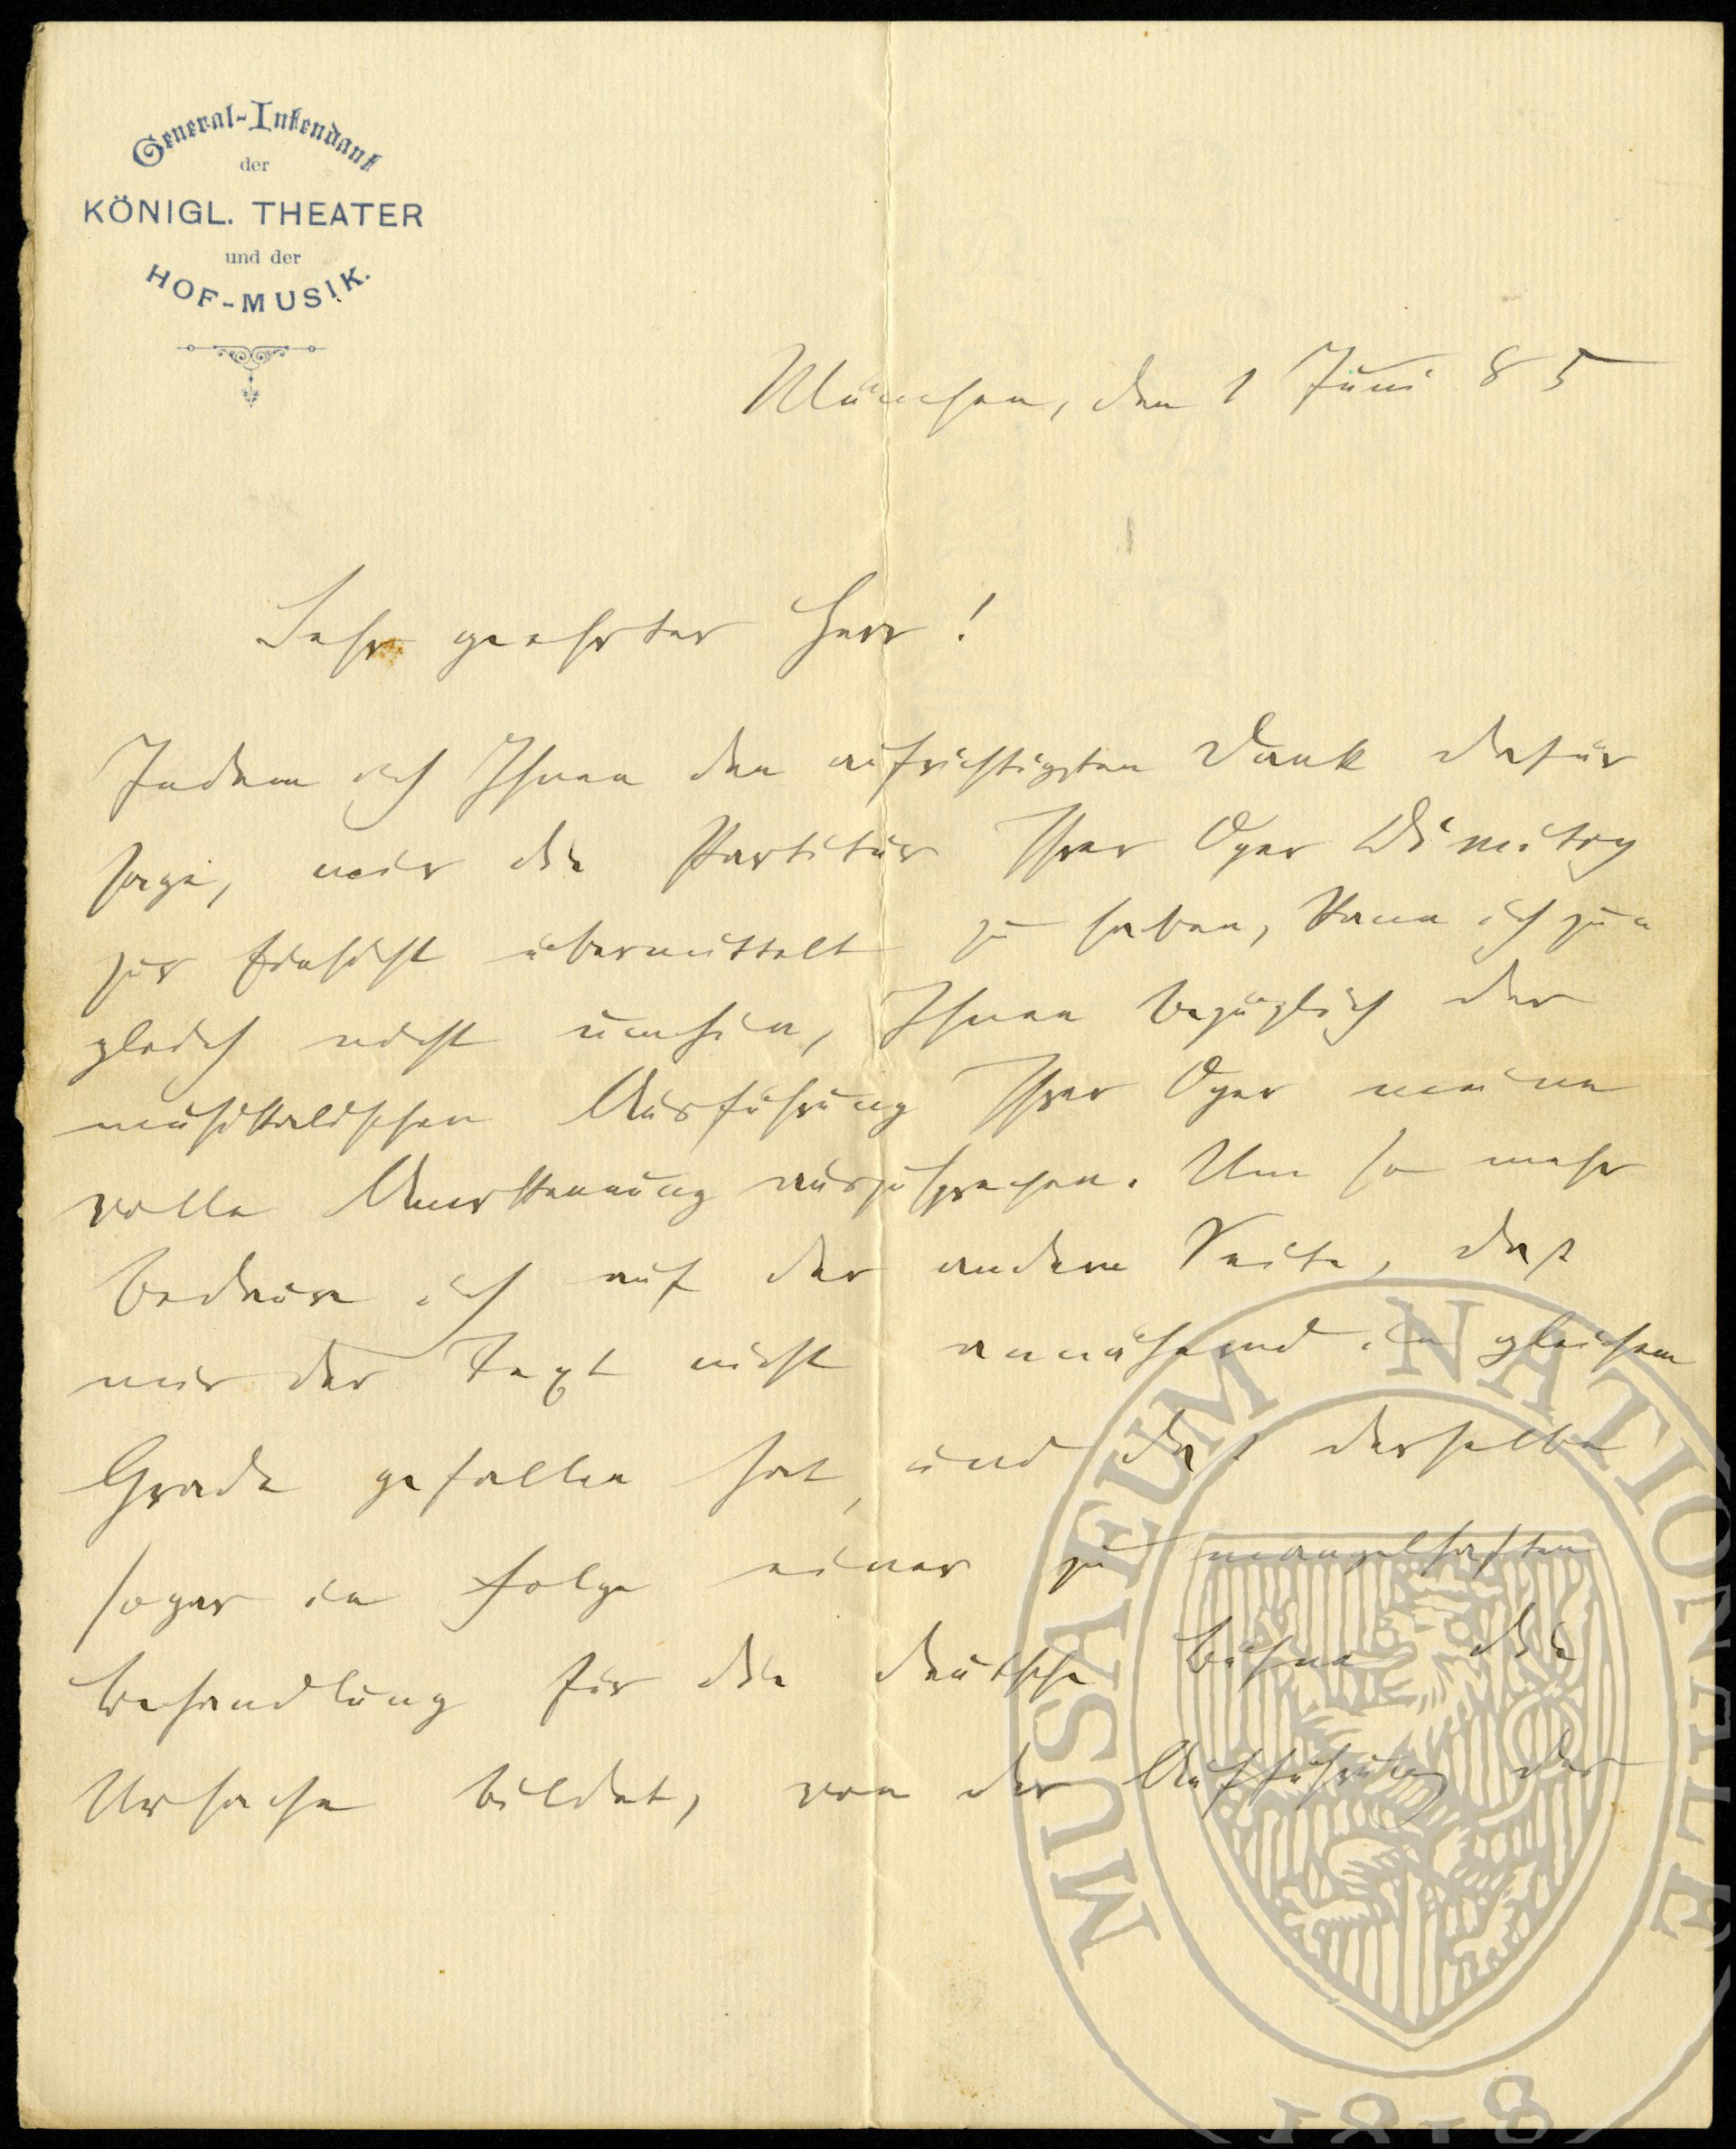 General-Intendant
der
KÖNIGL. THEATER
und der
HOF-MUSIK.
München, den 1 Juni 85
Sehr geehrter Herr!
Indem ich Ihnen den aufrichtigsten Dank dafür
sage, mir die Partitur Ihrer Oper Dimitry
zur Einsicht übermittelt zu haben, kann ich zu-
gleich nicht umhin, Ihnen bezüglich der
musikalischen Ausführung Ihrer Oper meine
volle Anerkennung auszusprechen. Um so mehr
bedaure ich auf der andern Seite, daß
mir der Text nicht annähernd in gleichem
Grade gefallen hat, und daß derselbe
sogar in Folge einer zu mangelhaften
Behandlung für die deutsche Bühne die
Ursache bildet, von der Aufführung der
MUSAEUM NATIONALE
1818